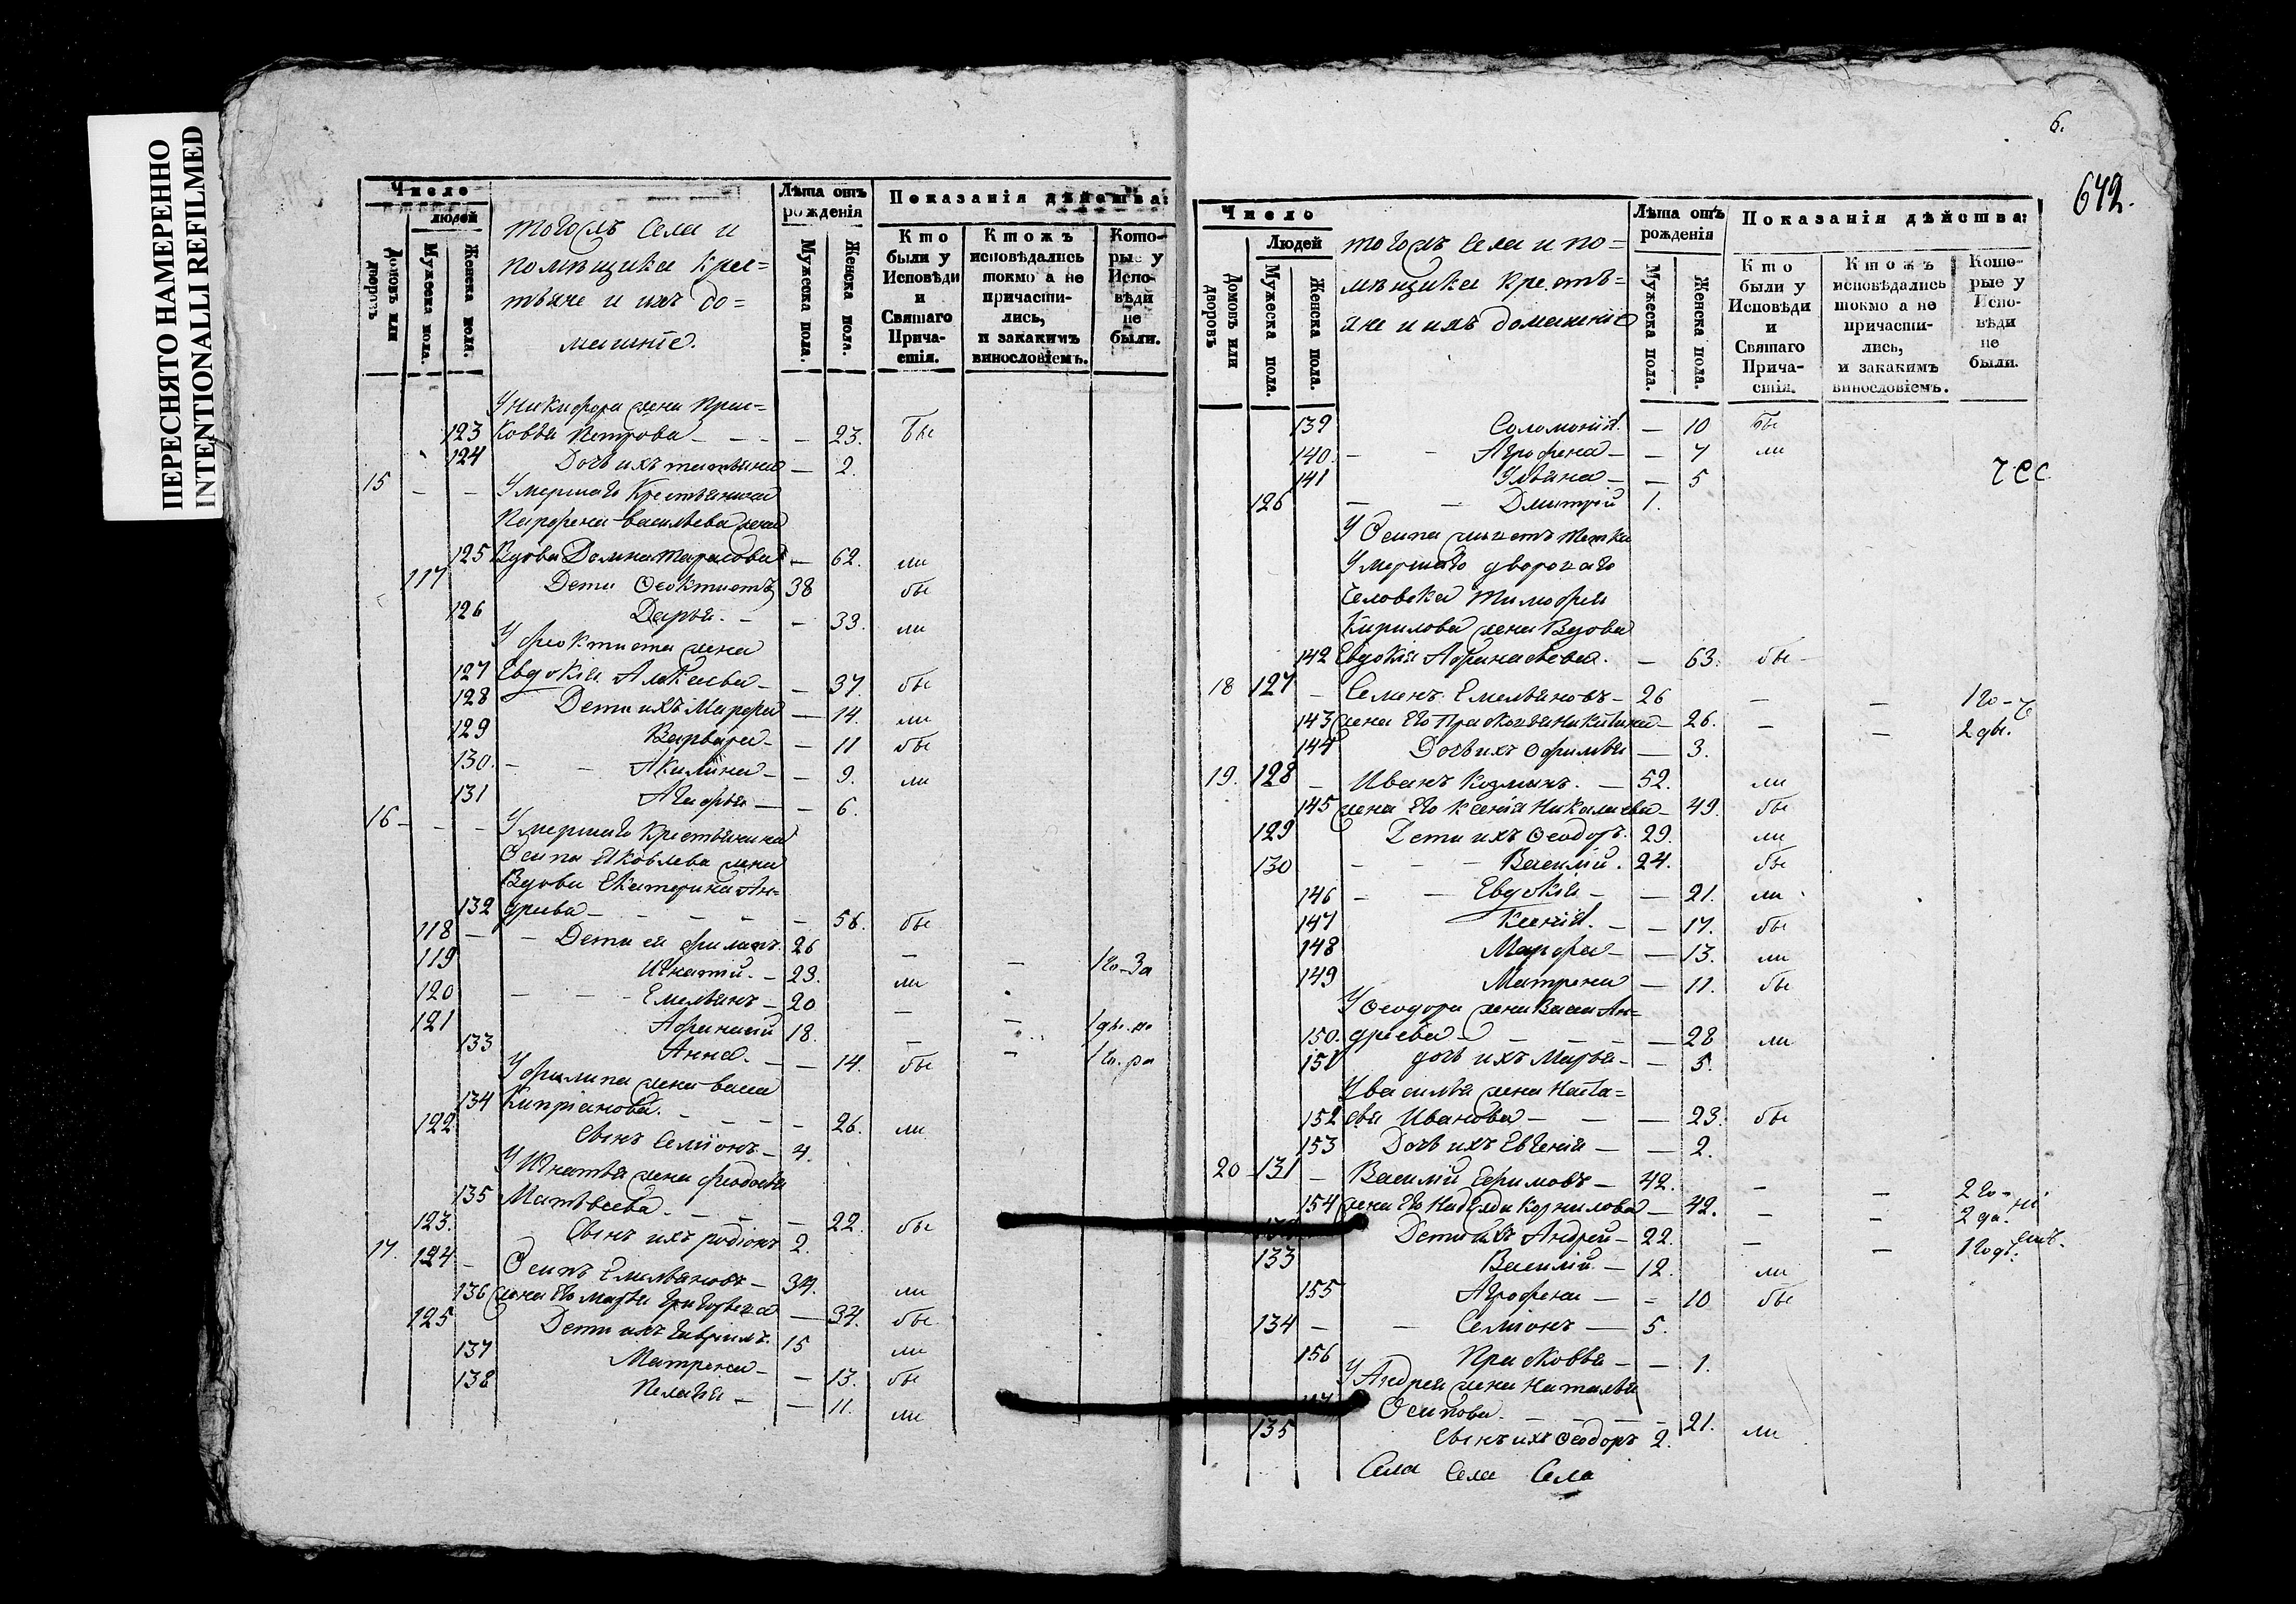 ПЕРЕСНЯТО НАМЕРЕННО
INTENTIONALLI REFILMED
Число
людей
Домовъ или дворовъ
Мужеска пола.
Женска пола.
тогожъ Села и
помѣщика крес=
тьяне и ихъ до=
машніе.
Лѣта отъ рожденія
Мужеска пола.
Женска пола.
Показанія дѣйства:
Кто были у Исповѣди и Святаго Прича-стія.
Ктожъ исповѣдались токмо а не причасти-лись, и закакимъ винословіемъ.
Кото-рые у Испо-вѣди не были.
У Никифора жена Прас=
123 ковья Петрова - - - - 23. бы
124 Дочь ихъ татьяна - 2.
15 - - Умершаго Крестьянина
Парфена Васильева жена
125 Вдова Домна тарасова - 62. ли
117 Дети Ѳеоктистъ 38 бы
126 Дарья. - - 33. ли
У феоктиста жена
127 Евдокія Алексеева - - 37. бы
128 Дети ихъ Марфа - 14. ли
129 Варвара - - 11 бы
130. - - Акилина - - 9. ли
131 Агафья - - 6.
16 - - - Умершаго Крестьянина
Осипа Яковлева жена
Вдова Екатерина Ан=
132 дреева - - - - - 56. бы
118 - - Дети ея филипъ 26 - -
119 Игнатій. - 23. ли
120 - - - Емельянъ - 20 - -
121 Афанасій 18. - -
133 Анна. - - 14. бы
У филипа жена Васа
134 Кипріанова. - - - - 26. ли
122 Сынъ Семіонъ - 4.
У Игнатья жена феодосья
135 Матвѣева. - - - - 22. бы
123. Сынъ ихъ родіонъ 2.
17. 124 - Осипъ Емельяновъ - 34. ли
136 жена Его Марья Григорьева - 34. бы
125 Дети ихъ Гаврилъ. 15 ли
137 Матрена - - 13. бы
138 Пелагея - - 11. ли
6.
642.
Число
Людей
Домовъ или дворовъ
Мужеска пола.
Женска пола.
тогожъ Села и по=
мѣщика крестъ=
яне и ихъ домашніе
Лѣта отъ рожденія
Мужеска пола.
Женска пола.
Показанія дѣйства:
Кто были у Исповѣди и Святаго Прича-стія.
Ктожъ исповѣдались токмо а не причасти-лись, и закакимъ винословіемъ.
Кото-рые у Испо-вѣди не были.
139 Соломонія. - 10 бы
140. - - Агрофена - - 7 ли
141 Ульяна - - 5
126 - - Дмитрій 1.
У Осипа живетъ тетка
Умершаго двороваго
Человека тимофея
Кирилова жена Вдова
142 Евдокія Афанасьева. - 63. бы -
18 127 - Семенъ Емельяновъ - 26 - -
143 жена Его Прасковья Никитина - 26. - - 2 ды.
144 Дочь ихъ Офимья - 3.
19. 128 - Иванъ Козминъ. - 52. ли
145 жена Его Ксенія Николаева - 49. бы
129 Дети ихъ Ѳеодоръ. 29. ли
130 - - - Василій. 24. бы
146 - - Евдокія - - 21. ли
147 Ксенія. - - 17. бы
148 Марфа - - 13. ли
149 Матрена - 11. бы
У Ѳеодора жена Васа Ан=
150. дреева - - - - - 28 ли
151 дочь ихъ Марья - - 5.
У Василья жена Наста=
152 сья Иванова - - - 23. бы
153 Дочь ихъ Евгенія - - 2.
20 - 131 - Василій Ефимовъ - 42. - -
154 жена Его Надежда Корнилова - 42. - -
Дети ихъ Андрей - 22. - -
133 Василій. - 12. ли
155 Агрофена - - 10 бы
134 - - Семіонъ - 5.
156 Прасковья - - 1.
У Андрея жена Наталья
Осипова. - - - - 21. ли
135 Сынъ ихъ Ѳеодоръ 2.
Села Села Села